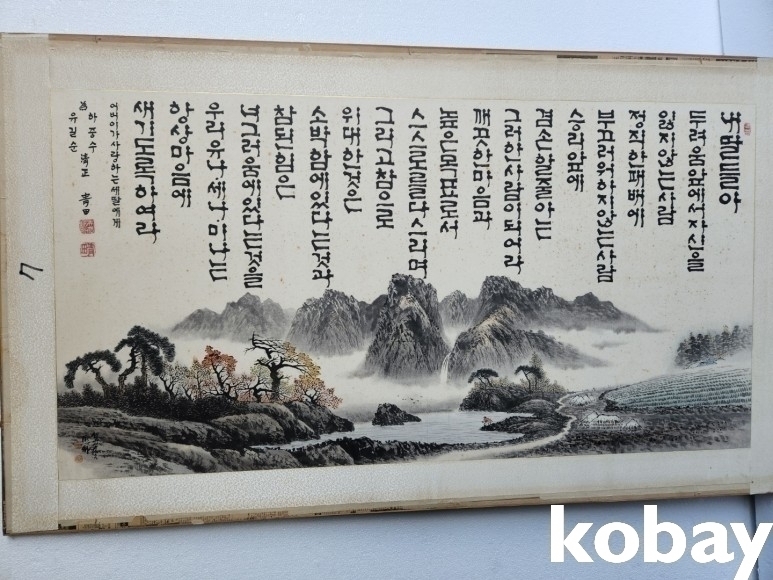 내 딸들아
두려움 앞에서 자신을
잃지 않는 사람
정직한 패배에
부끄러워하지 않는 사람
승리 앞에
겸손할 줄 아는
그러한 사람이 되어라
깨끗한 마음과
높은 목표로서
스스로를 다스리며
그리고 참으로
위대한 것은
소박함에 있다는 것과
참된 힘은
너그러움에 있다는 것을
우리 유나 세나 미나는
항상 마음에
새기도록 하여라
어버이가 사랑하는 세 딸에게
爲 하풍수
유길순
淸正
7
kobay